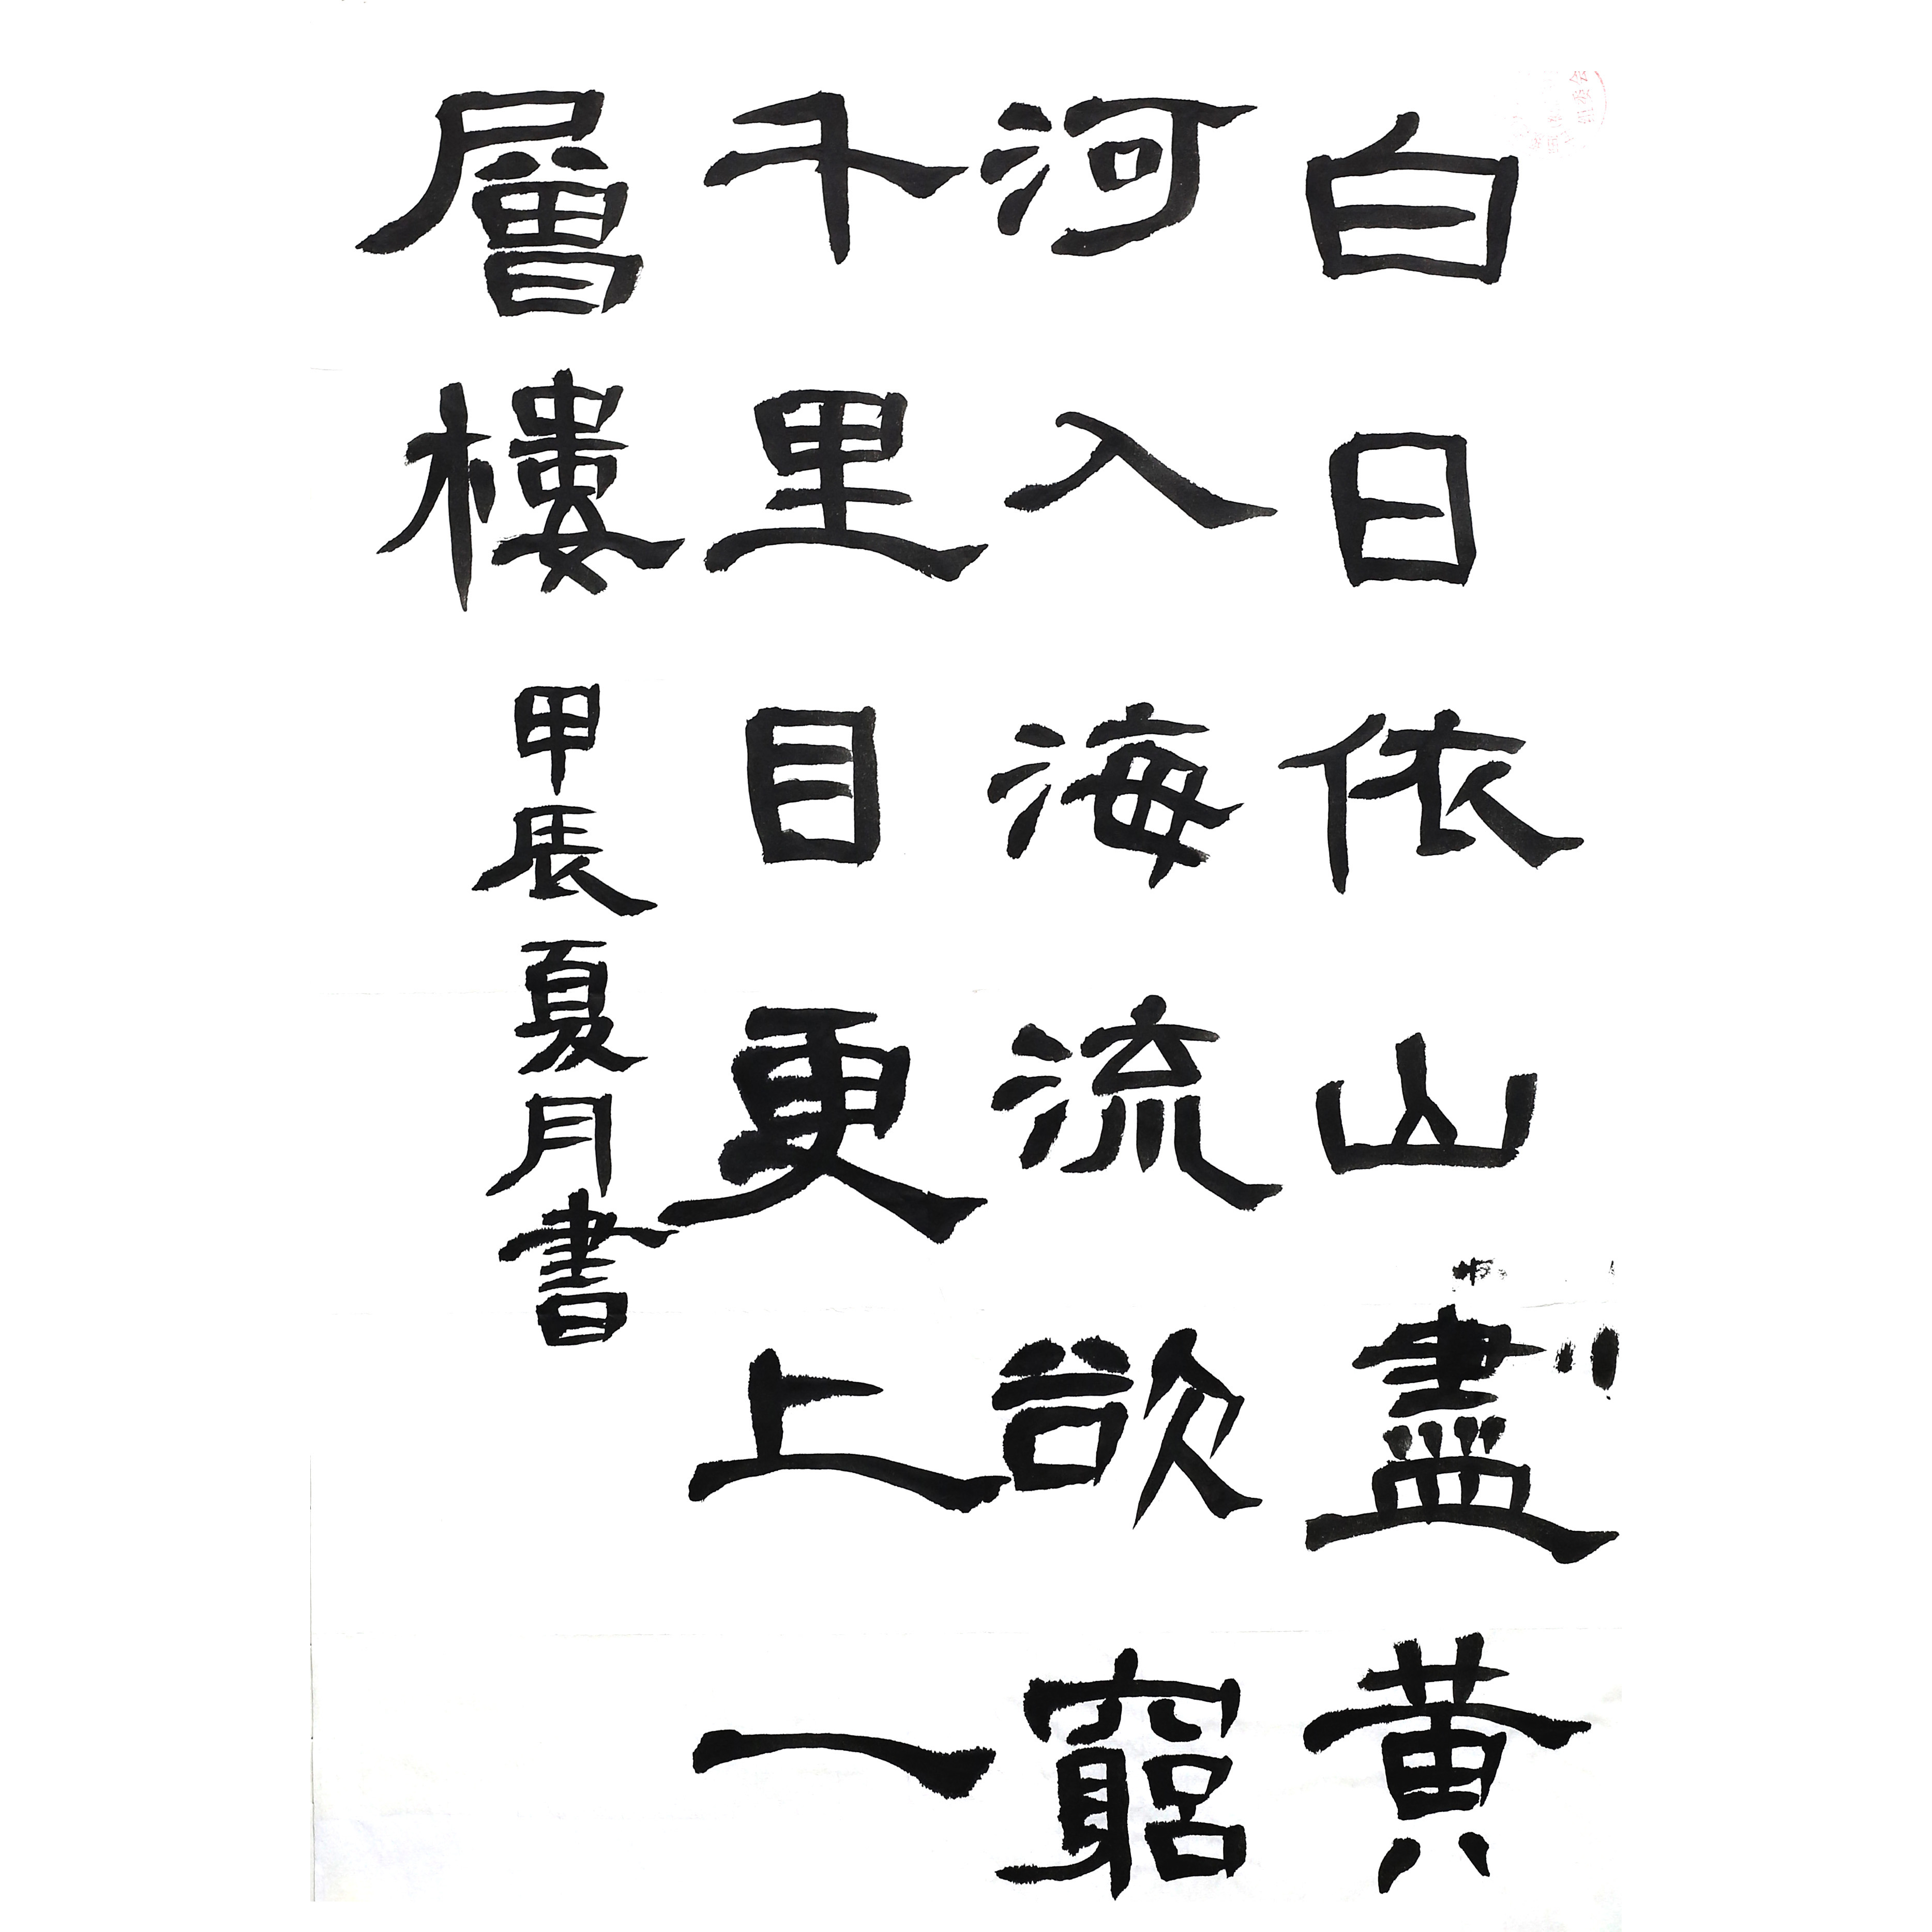 白日依山盡黄
河入海流欲窮
千里目更上一
層樓
甲辰夏月書